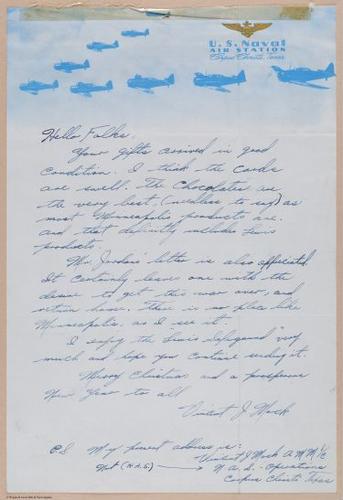 U.S. Naval
AIR STATION
Corpus Christi, Texas
Hello Folks,
Your gifts arrived in good
condition. I think the cards
are swell. The Chocolates are
the very best, (needless to say) as
most Minneapolis products are.
and that definitely includes Lewis
products.
Mr. Jordans' letter is also appreciated.
It certainly leaves one with the
desire to get this war over, and
return home. There is no place like
Minneapolis, as I see it.
I enjoy the Lewis Safeguard very
much and hope you continue sending it.
Merry Christmas and a prosperous
New Year to all
Vincent J Mack
P.S. My present address is:
Vincent J Mack A.M.M 1/c
Not (N.A.S.) → N.A.S. - Operations
Corpus Christi, Texas